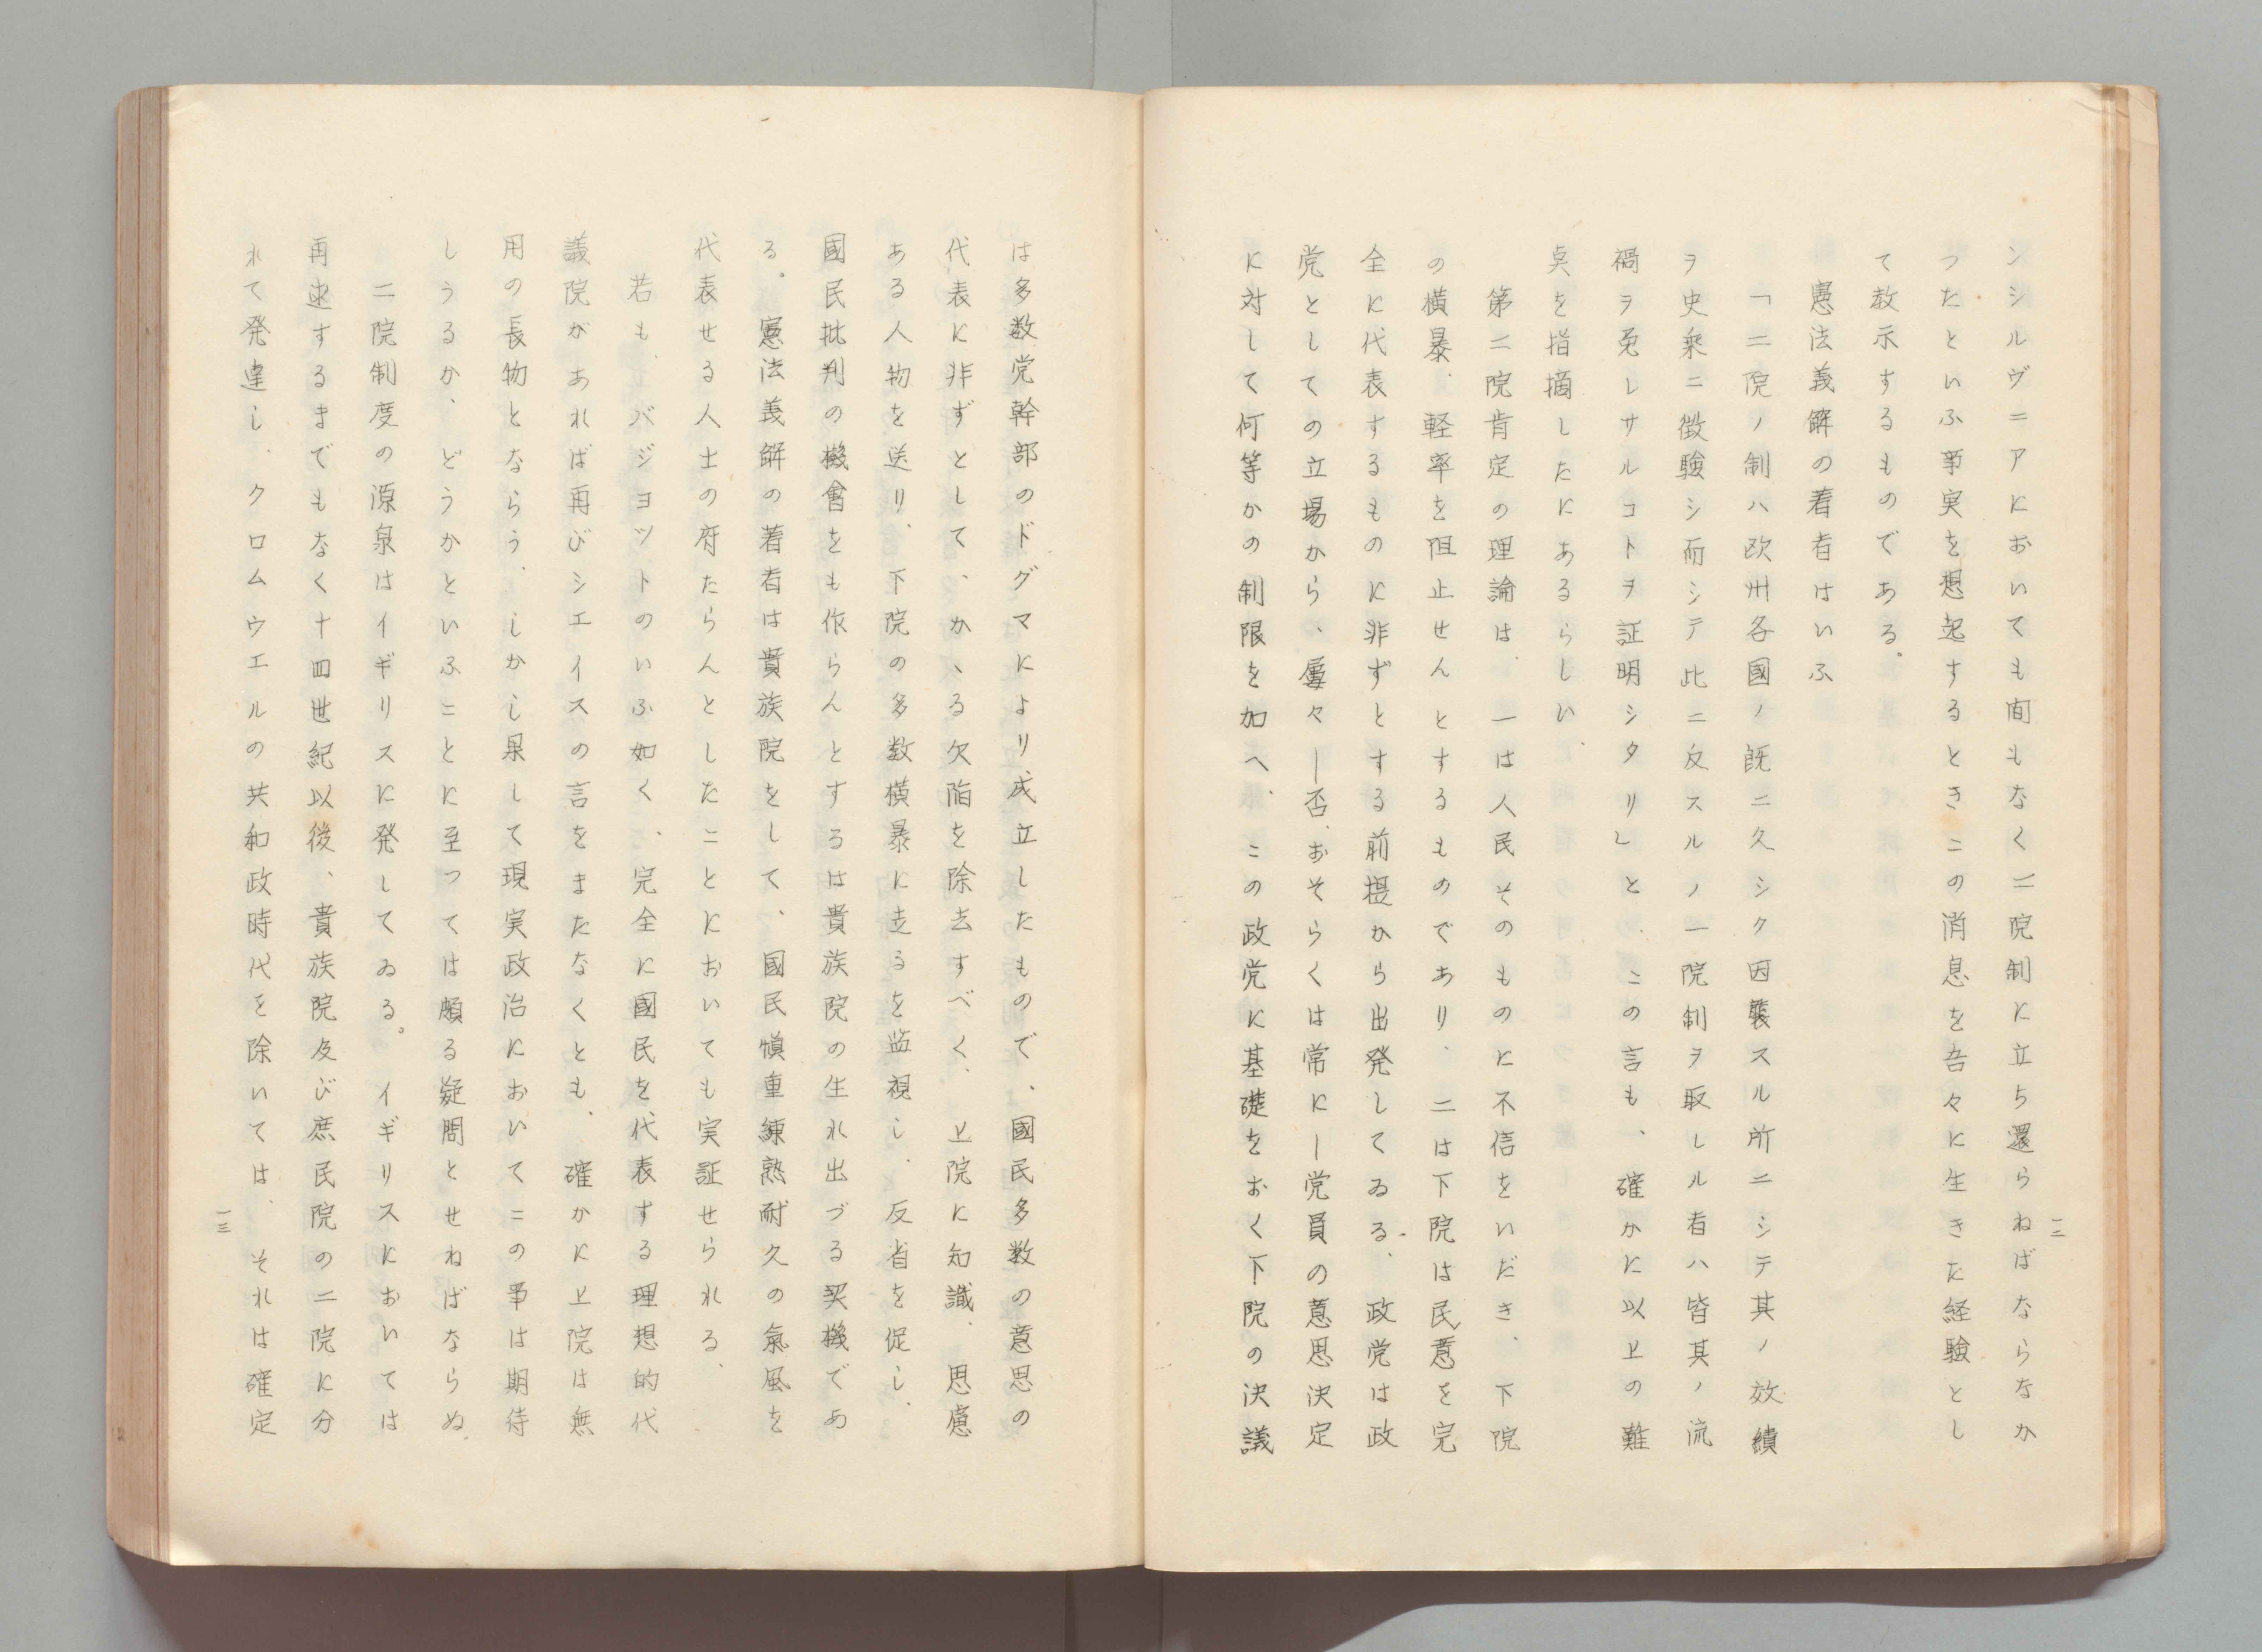 ンシルヴニアにおいても間もなく二院制に立ち還らねばならなか
つたといふ事実を想起するときこの消息を吾々に生きた経験とし
て教示するものである。
憲法義解の著者はいふ
「二院ノ制ハ欧州各國ノ既ニ久シク因襲スル所ニシテ其ノ效績
ヲ史乗ニ徴験シ而シテ此ニ反スルノ一院制ヲ取レル者ハ皆其ノ流
禍ヲ免レサルコトヲ証明シタリ」と、この言も、確かに以上の難
点を指摘したにあるらしい、
第二院肯定の理論は、一は人民そのものに不信をいだき、下院
の横暴、軽率を阻止せんとするものであり、二は下院は民意を完
全に代表するものに非ずとする前提から出発してゐる、政党は政
党としての立場から、屡々―否、おそらくは常に―党員の意思決定
に対して何等かの制限を加へ、この政党に基礎をおく下院の決議
一二
は多数党幹部のドグマにより成立したもので、國民多数の意思の
代表に非ずとして、かゝる欠陥を除去すべく、上院に知識、思慮
ある人物を送り、下院の多数横暴に走るを監視し、反省を促し、
國民批判の機會をも作らんとするは貴族院の生れ出づる契機であ
る。憲法義解の著者は貴族院をして、國民慎重練熟耐久の氣風を
代表せる人士の府たらんとしたことにおいても実証せられる、
若も、バジヨツトのいふ如く、完全に國民を代表する理想的代
議院があれば再びシエイスの言をまたなくとも、確かに上院は無
用の長物とならう、しかし果して現実政治においてこの事は期待
しうるか、どうかといふことに至つては頗る疑問とせねばならぬ、
二院制度の源泉はイギリスに発してゐる。イギリスにおいては
再述するまでもなく十四世紀以後、貴族院及び庶民院の二院に分
れて発達し、クロムウエルの共和政時代を除いては、それは確定
一三